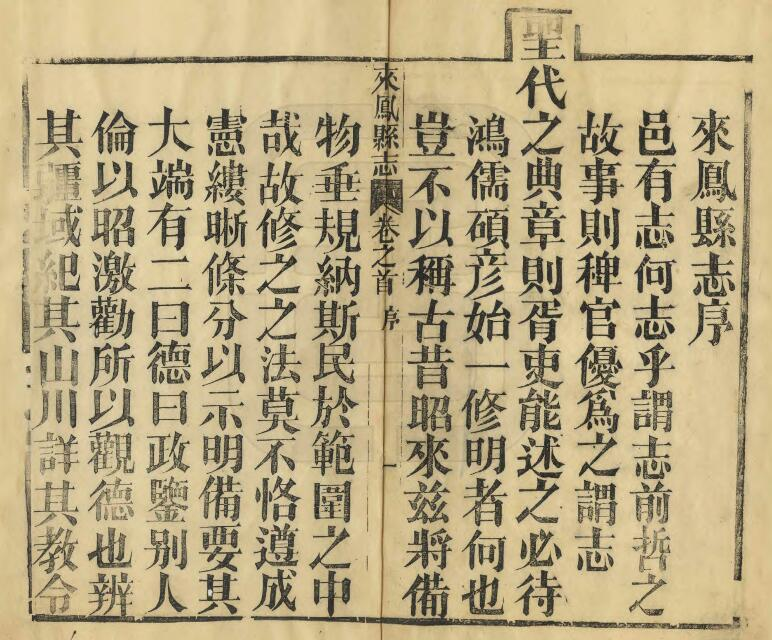 來鳳縣志序
邑有志何志乎謂志前哲之
故事則稗官優爲之謂志
聖代之典章則胥吏能述之必待
鴻儒碩彦始一修明者何也
豈不以稱古昔昭來兹將備
來鳳縣志 卷之首 序 一
物垂規納斯民於範圍之中
哉故修之之法莫不恪遵成
憲縷晰條分以示明備要其
大端有二曰德曰政鑒别人
倫以昭激勸所以觀德也辨
其疆域紀其山川詳其教令